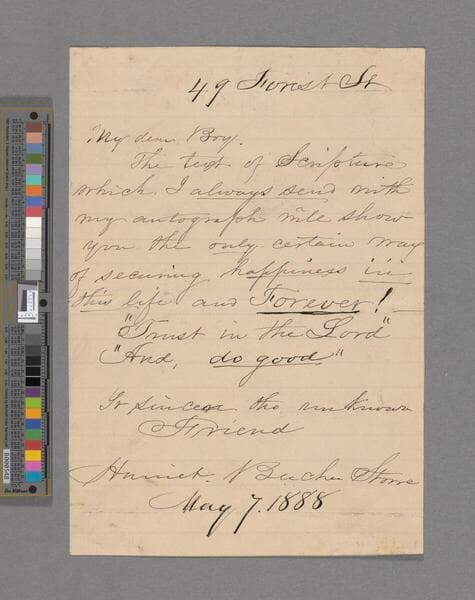 49 Forest St
My dear Boy.
The text of Scripture
which I always send with
my autograph will show
you the only certain way
of securing happiness in
this life and Forever!
"Trust in the Lord"
"And, do good"
Yr sincere tho unknown
Friend
Harriet Beecher Stowe
May 7. 1888